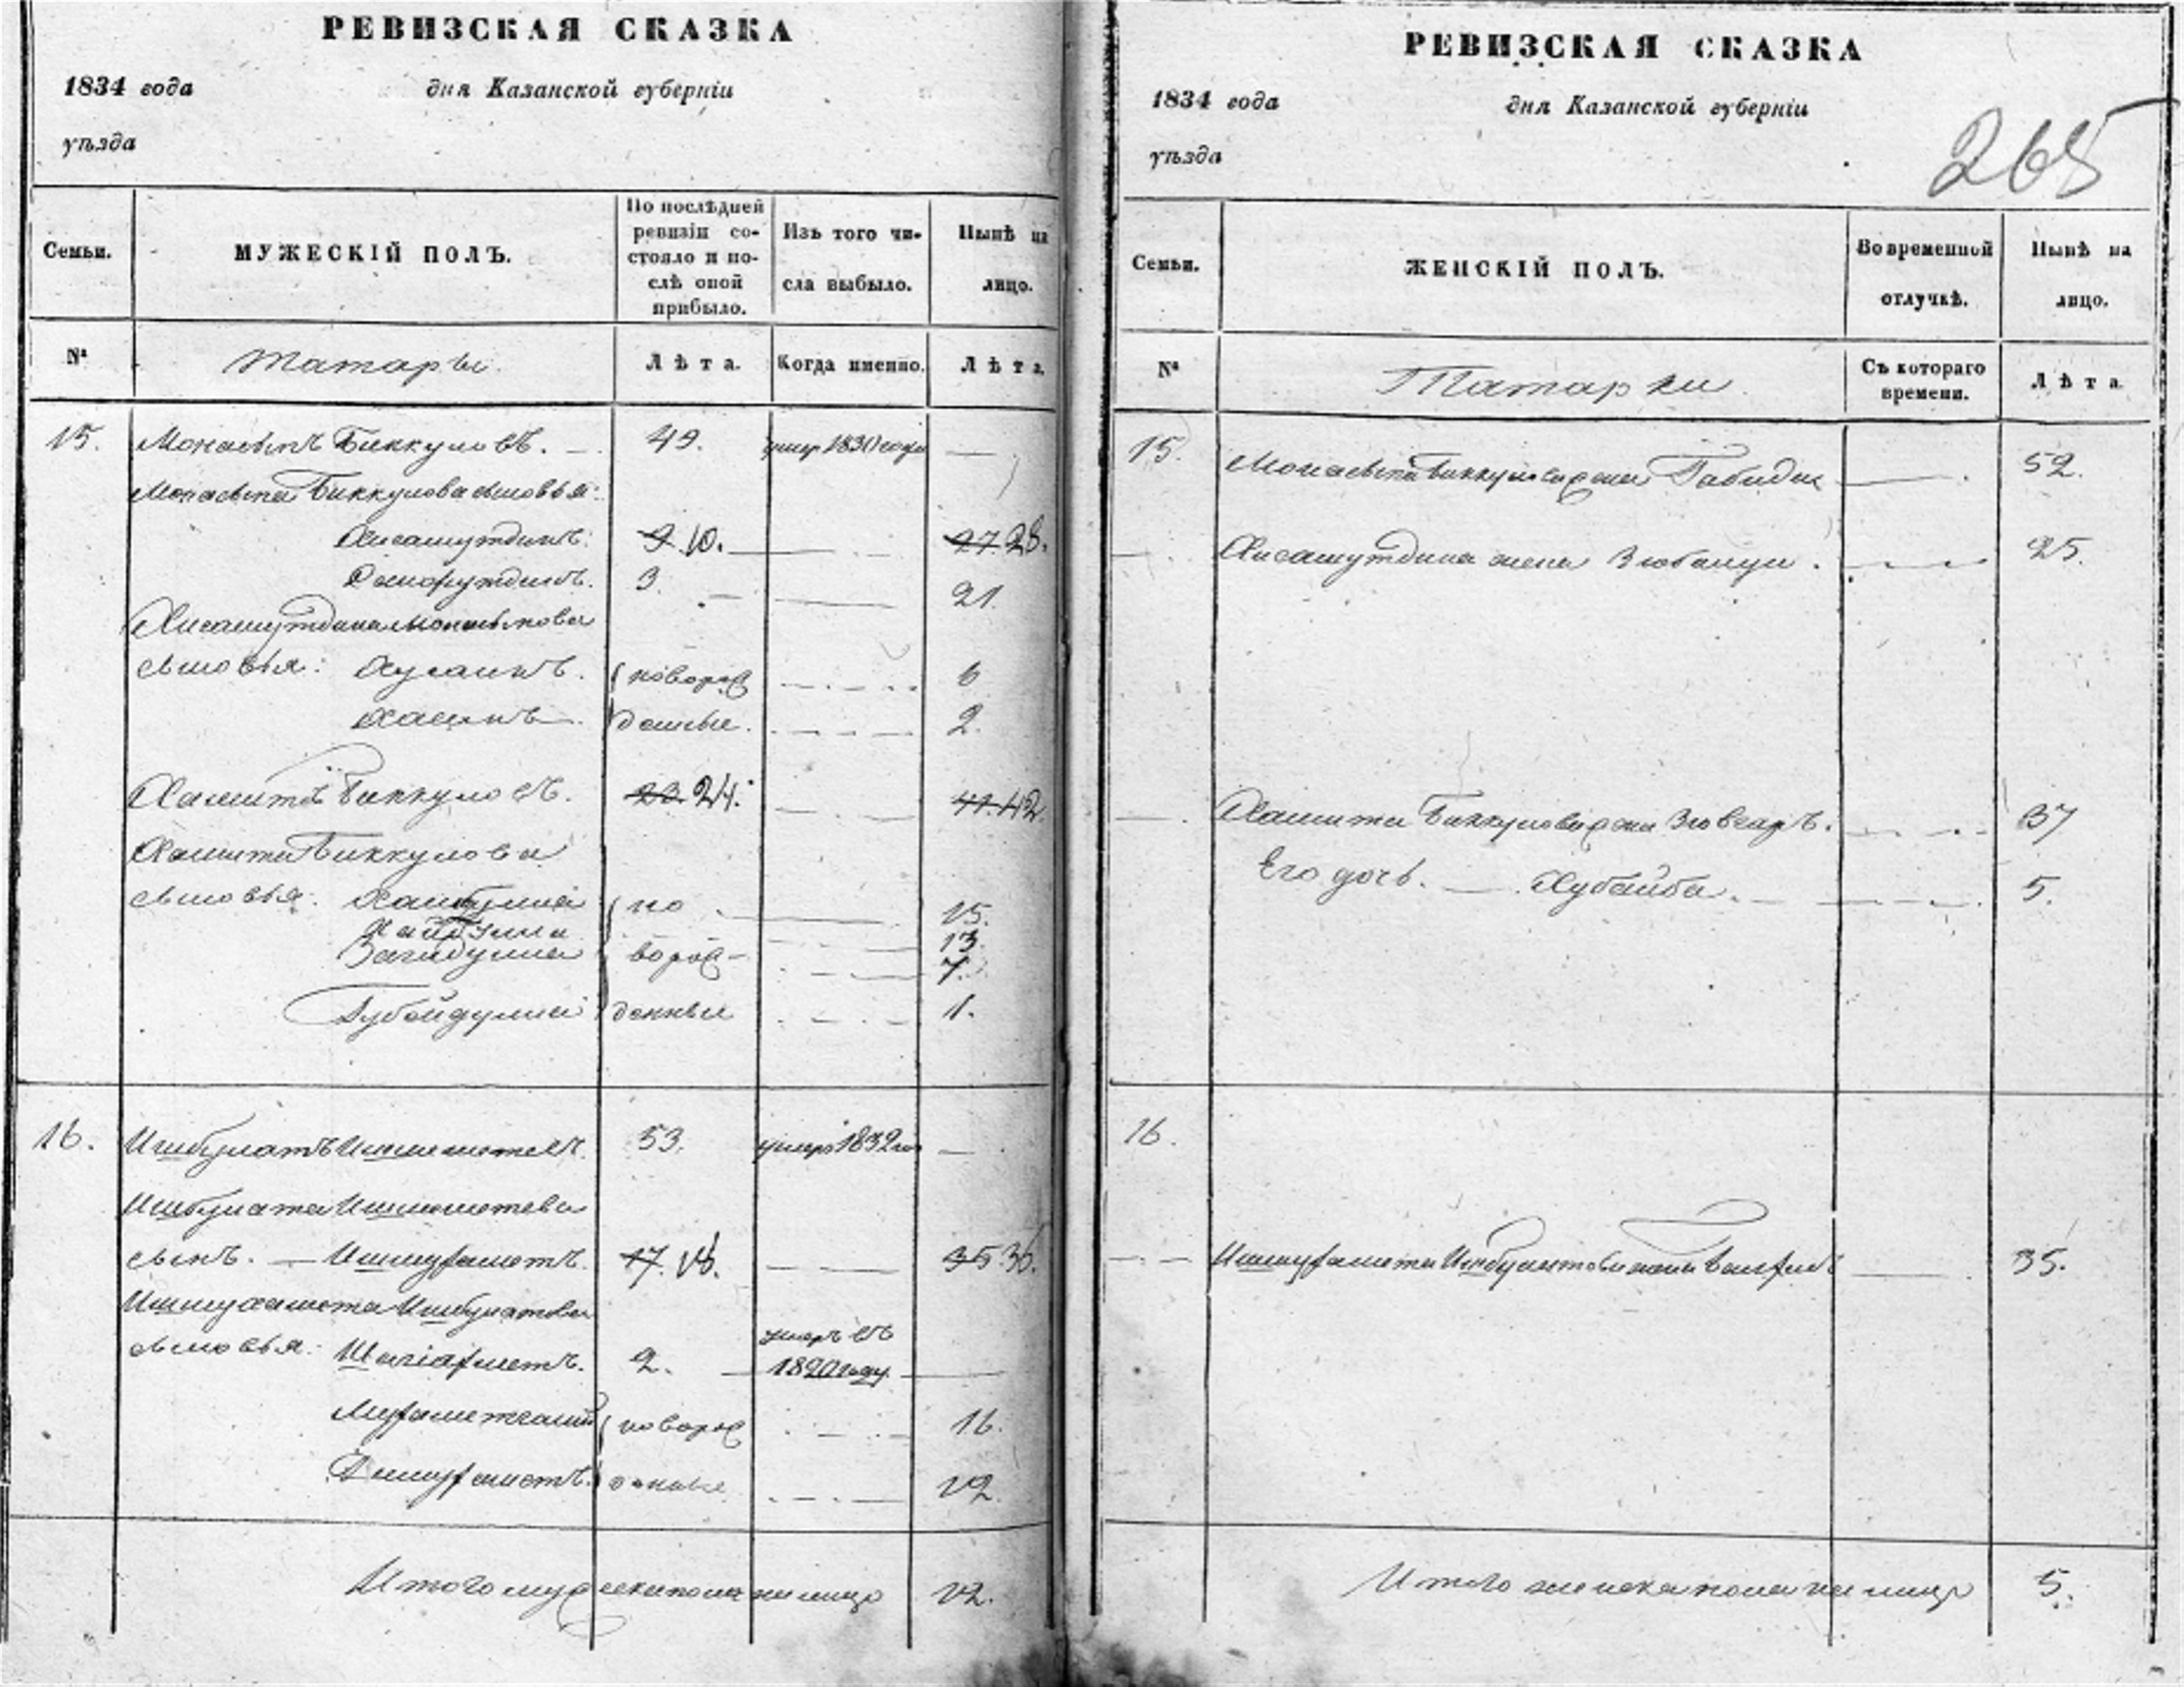 РЕВИЗСКАЯ СКАЗКА
1834 года дня Казанской губерніи
уѣзда
Семьи.
МУЖЕСКІЙ ПОЛЪ.
По послѣдней
ревизіи со-
стояло и по-
слѣ оной
прибыло.
Изъ того чи-
сла выбыло.
Нынѣ на
лицо.
№
Татары.
Лѣта.
Когда именно.
Лѣта.
15. Монасыпъ Биккуловъ. 49. умер 1831 года —
Монасыпа Биккулова сыновья:
Хисамутдинъ. 9 10. 27 28.
3. 21.
Хисамутдина Монасыпова
сыновья: Хусаинъ. новорож 6
Хасанъ денные. 2.
Хамитъ Биккуловъ. 23 24. 41. 42.
Хамита Биккулова
сыновья: но 15.
Хайбулла 13.
Загидулла ворож- 7.
Губайдулла денные 1.
16. Ишбулатъ Ишмаметевъ. 53. умеръ 1832 го —
Ишбулата Ишмаметева
сынъ. — Ишмухаметъ. 17. 18. 35 36.
Ишмухамета Ишбулатова
сыновья: Шагіахметъ. 2. умеръ въ
1820 году.
новорож 16.
денные 12
Итого мужеска пола на лицо 12.
РЕВИЗСКАЯ СКАЗКА
1834 года дня Казанской губерніи
уѣзда
265
Семьи.
ЖЕНСКІЙ ПОЛЪ.
Во временной
отлучкѣ.
Нынѣ на
лицо.
№
Татарки.
Съ котораго
времени.
Лѣта.
15. Монасыпа Биккулова жена Габида 52.
Хисамутдина жена Зюбанзи. 25.
Хамита Биккулова жена Зювгаръ. 37
Его дочь. — Хубайба. 5.
16.
Ишмухамета Ишбулатова жена 35.
Итого женска пола на лицо 5.